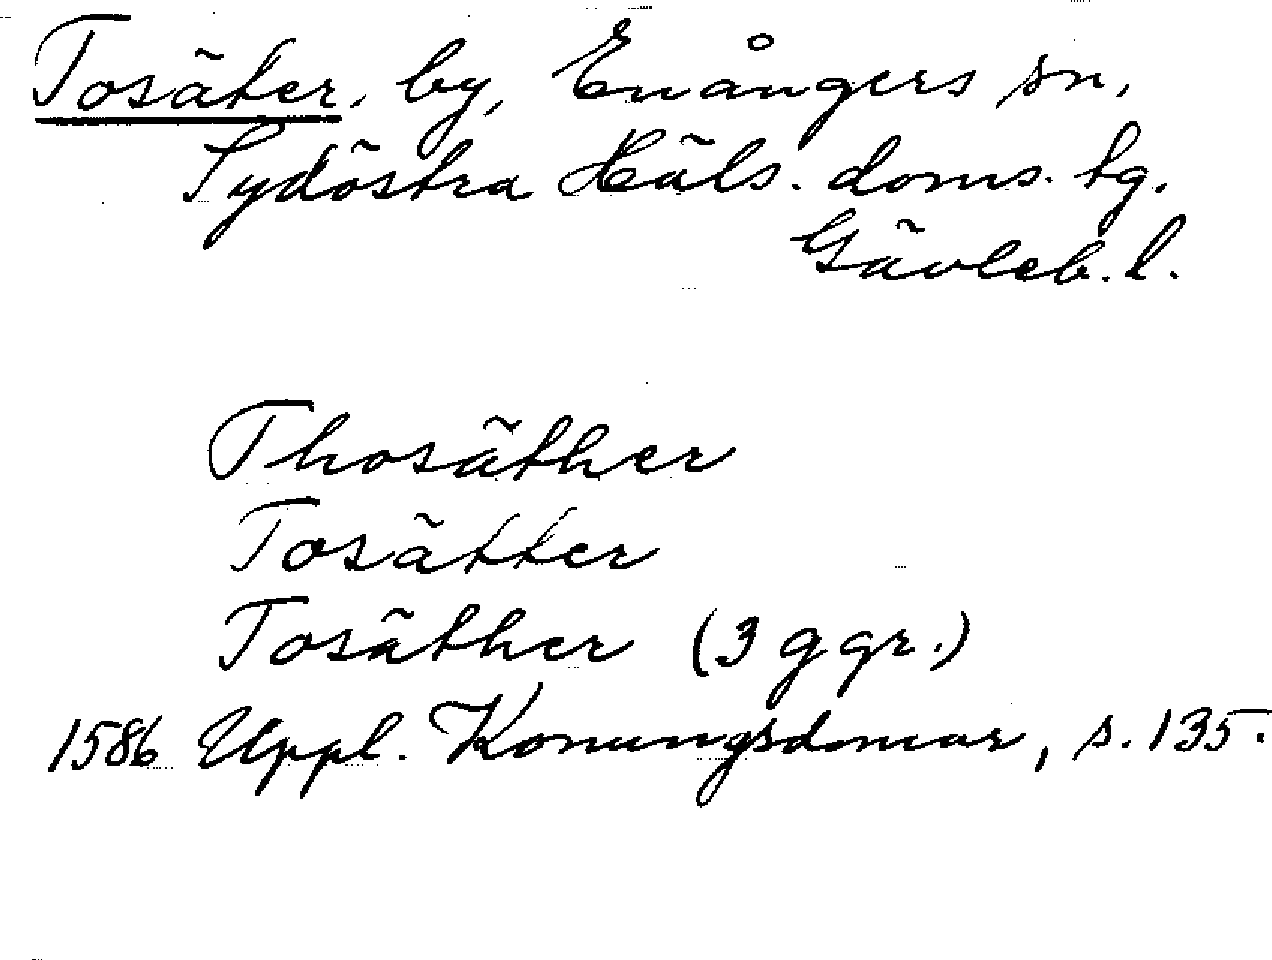 Tosäter, by, Enångers sn,
Sydöstra Häls. doms. tg.
Gävleb. l.
Thosäther
Tosätter
Tosäther (3 ggr.)
1586 Uppl. Konungsdomar, s. 135.